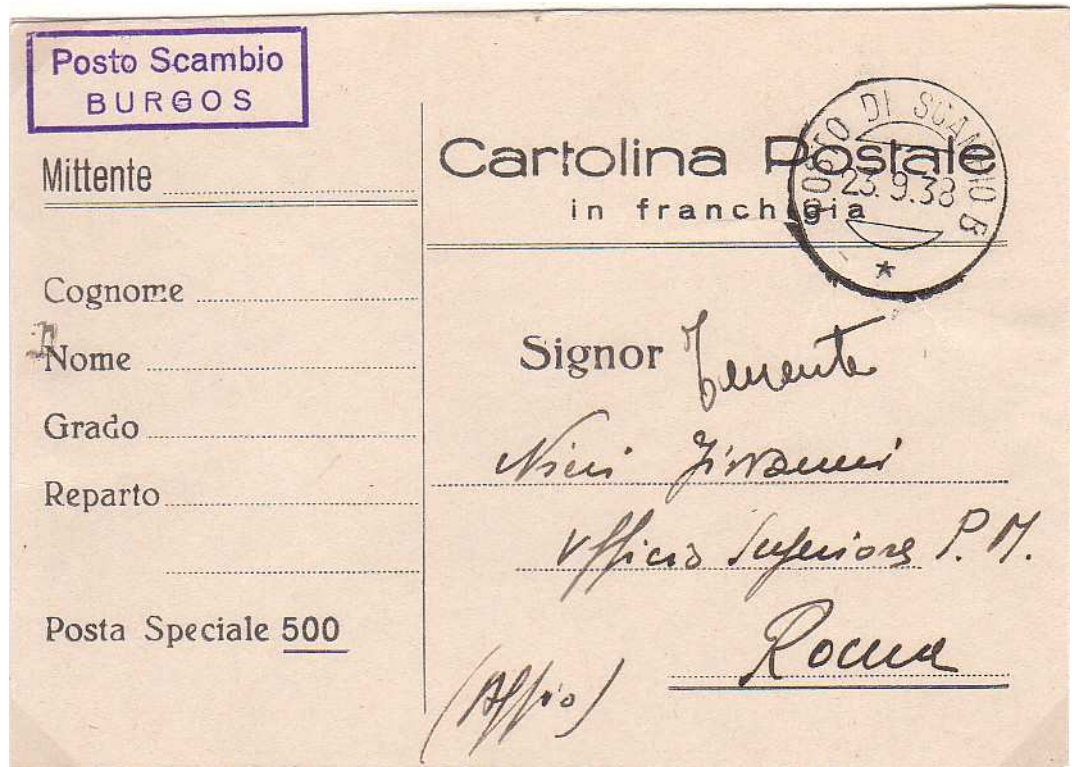 Posto Scambio
BURGOS
Mittente
Cognome
Nome
Grado
Reparto
Posta Speciale 500
Cartolina Postale
in franchigia
POSTO DI SCAMBIO B
23.9.38
Signor Tenente
Nieri Giovanni
Ufficio Superiore P. M.
Roma